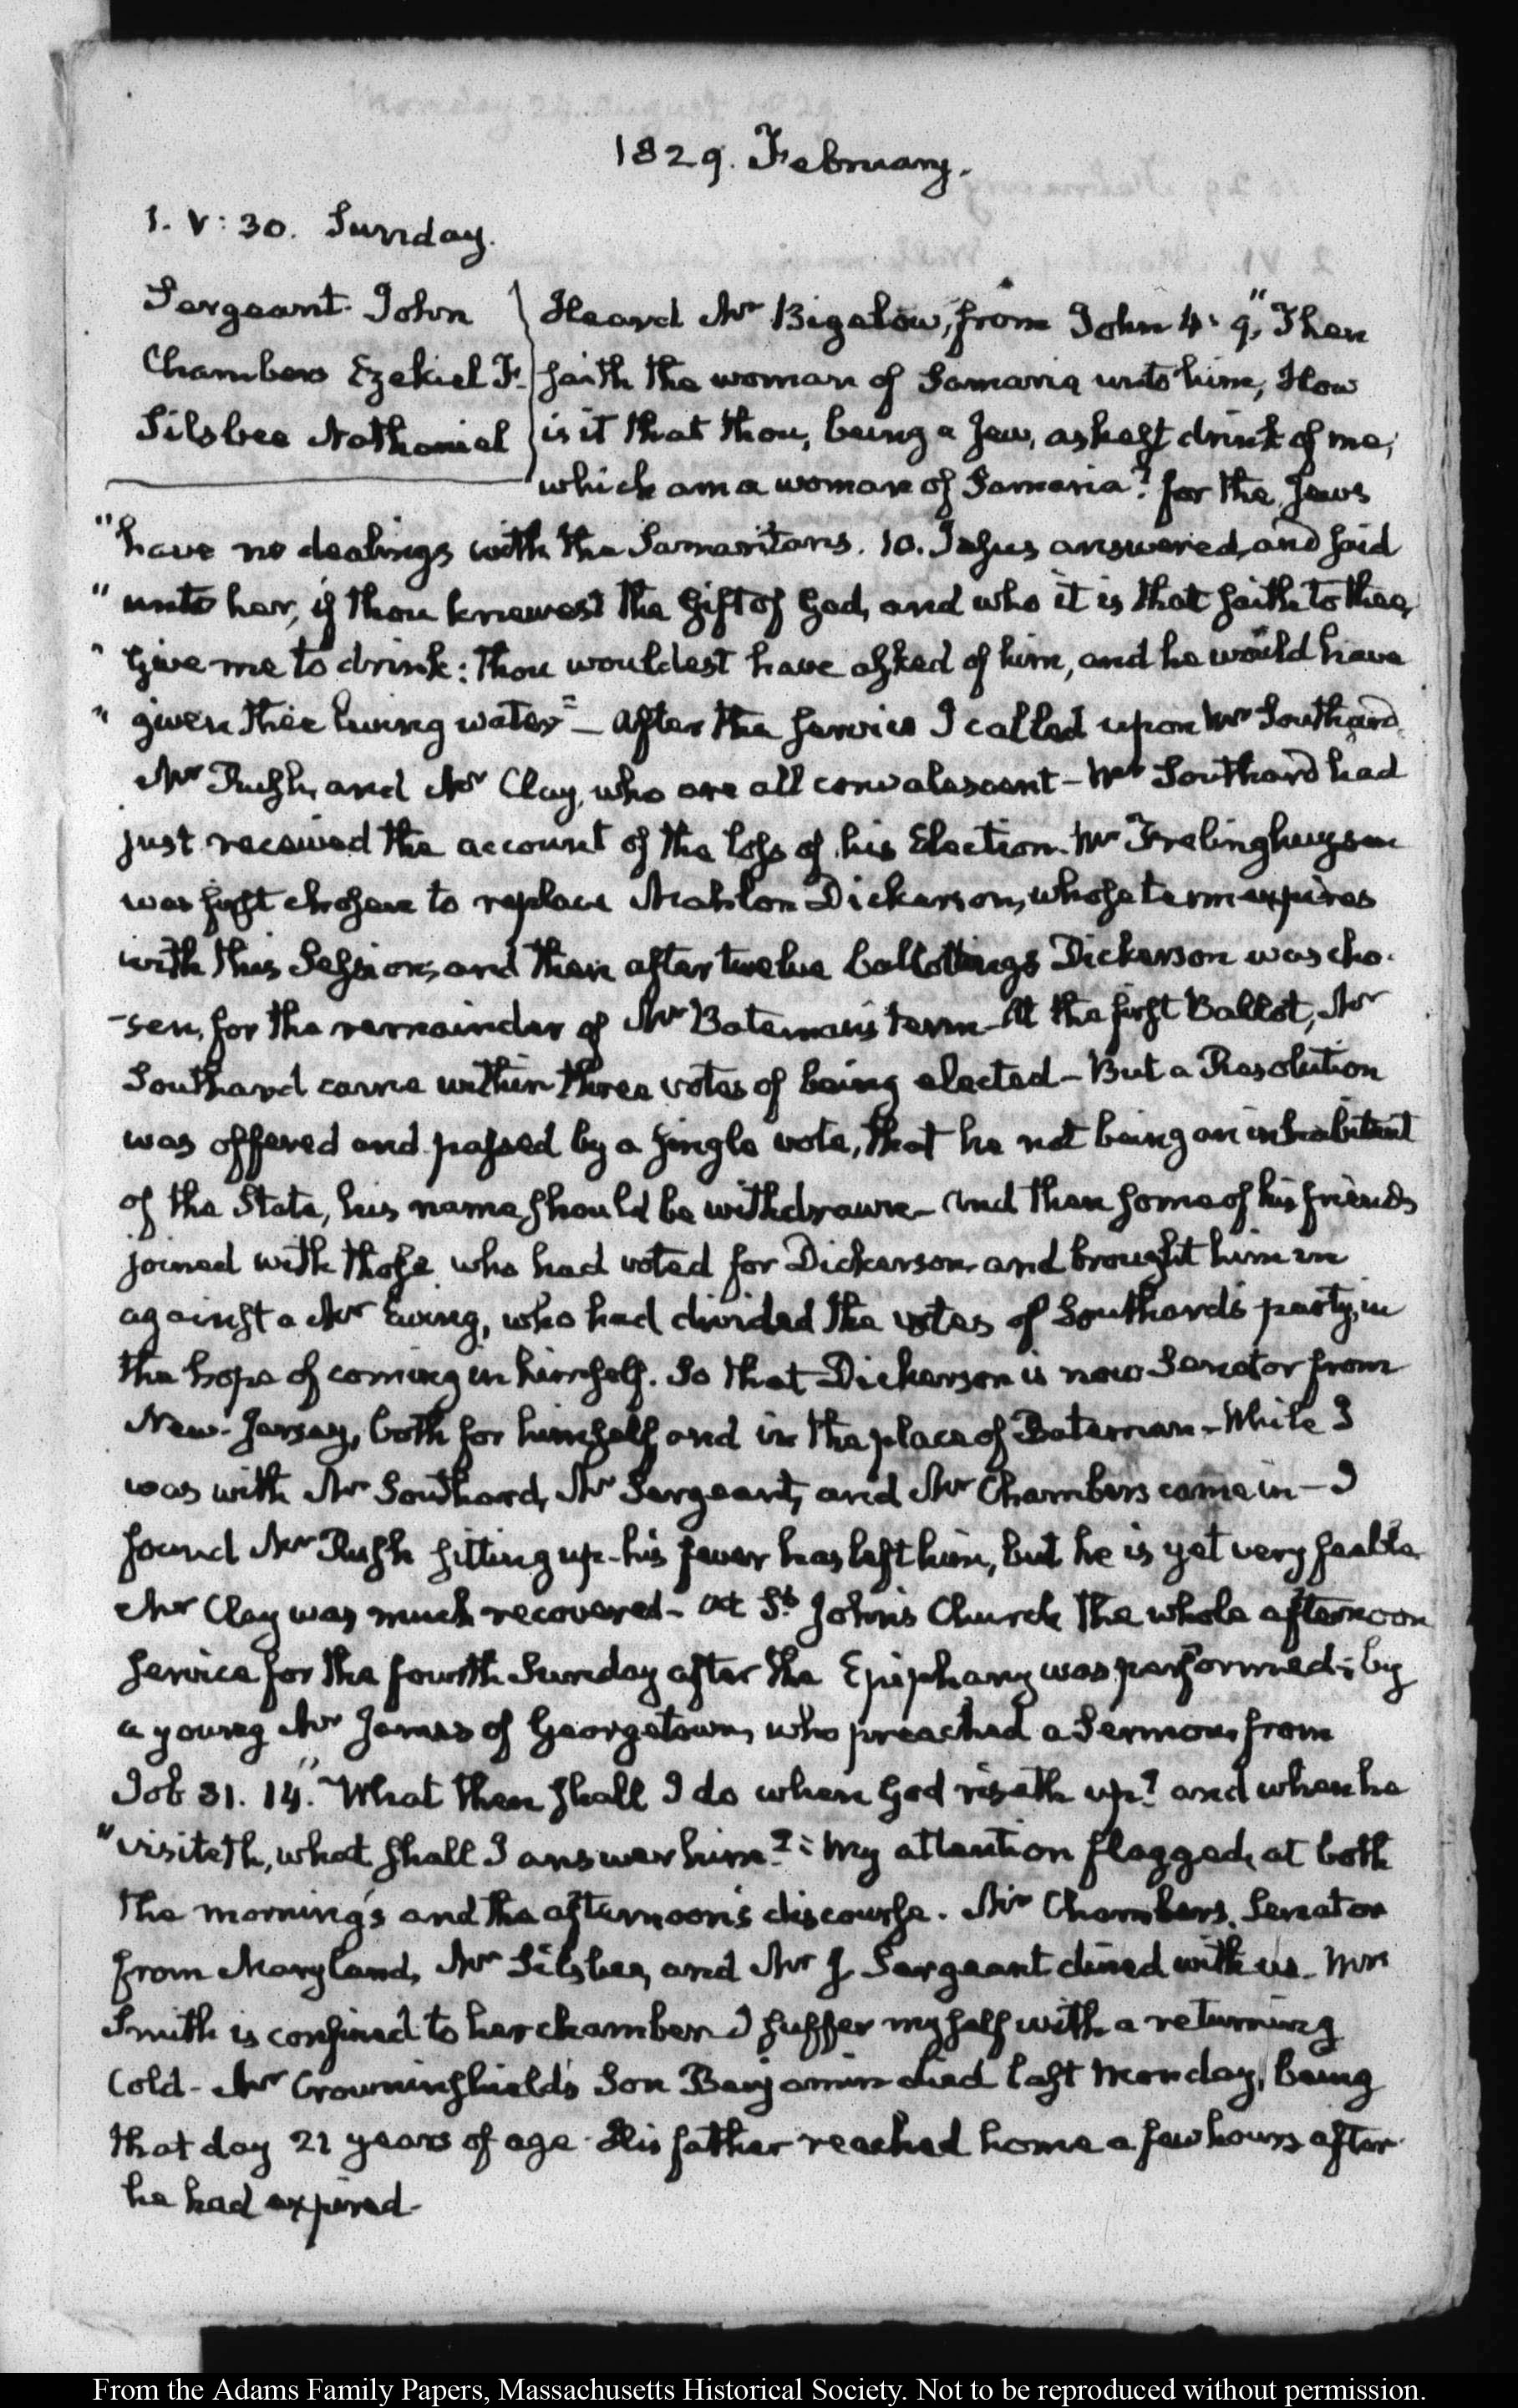 1829. February.
1. V: 30. Sunday.
Sergeant. John
Chambers Ezekiel F.
Silsbee Nathaniel
Heard Mr Bigelow, from John 4: 9, "Then
saith the woman of Samaria unto him, How
is it that thou, being a Jew, askest drink of me,
which am a woman of Samaria? for the Jews
"have no dealings with the Samaritans. 10. Jesus answered, and said
"unto her, if thou knewest the Gift of God, and who it is that saith to thee,
"Give me to drink: thou wouldest have asked of him, and he would have
"given thee living water" — After the service I called upon Mr Southard,
Mr Rush, and Mr Clay, who are all convalescent — Mr Southard had
just received the account of the loss of his Election. Mr Frelinghuysen
was first chosen to replace Mahlon Dickerson, whose term expires
with this Session, and then after twelve ballottings Dickerson was cho-
-sen, for the remainder of Mr Bateman's term — At the first Ballot, Mr
Southard came within three votes of being elected — But a Resolution
was offered and passed by a single vote, that he not being an inhabitant
of the State, his name should be withdrawn — And then some of his friends
joined with those who had voted for Dickerson and brought him in
against a Mr Ewing, who had divided the votes of Southard's party, in
the hope of coming in himself. So that Dickerson is now Senator from
New-Jersey, both for himself, and in the place of Bateman — While I
was with Mr Southard, Mr Sergeant, and Mr Chambers came in — I
found Mr Rush sitting up — his fever has left him, but he is yet very feeble
Mr Clay was much recovered — At St. John's Church the whole afternoon
service for the fourth Sunday after the Epiphany was performed; by
a young Mr James of Georgetown, who preached a Sermon from
Job 31. 14. "What then shall I do when God riseth up? and when he
"visiteth, what shall I answer him?" My attention flagged, at both
the morning's and the afternoon's discourse. Mr Chambers, Senator
from Maryland, Mr Silsbee, and Mr J. Sergeant dined with us — Mrs
Smith is confined to her chamber I suffer myself with a returning
Cold — Mr Crowninshield's Son Benjamin died last Monday, being
that day 21 years of age. His father reached home a few hours after
he had expired —
From the Adams Family Papers, Massachusetts Historical Society. Not to be reproduced without permission.